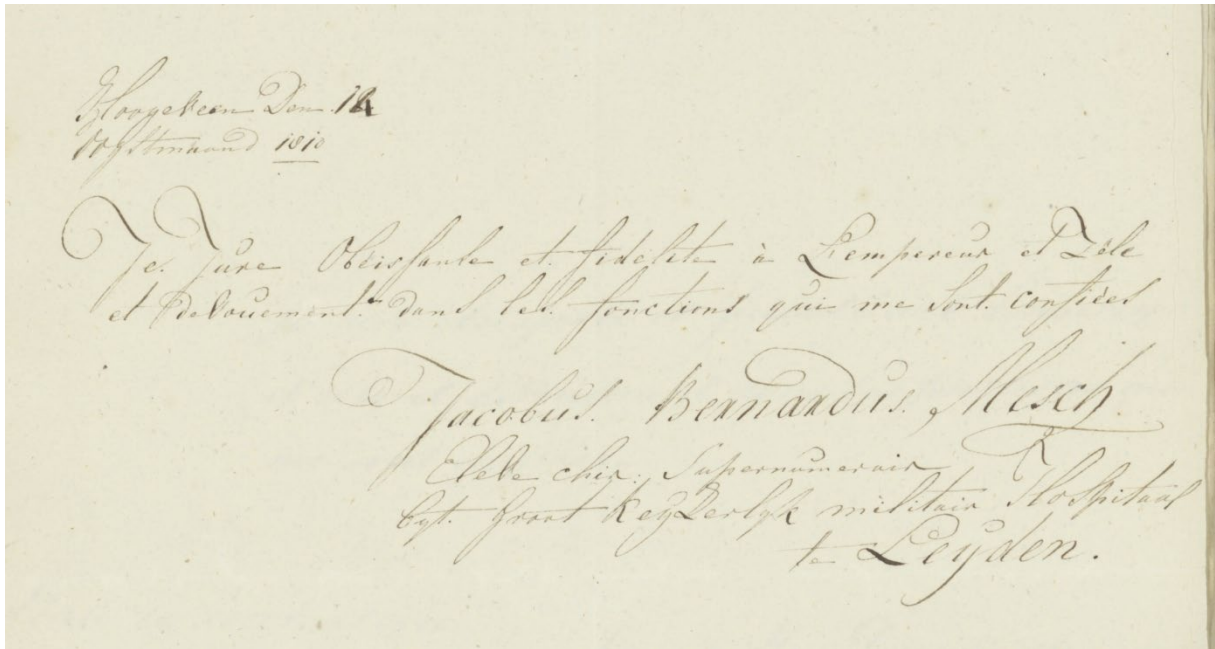 Hoogeveen Den 14
Oogstmaand 1810
Je Jure Obeissante et fidelite à L'empereur et Zele
et devouement. dans les fonctions qui me sont confiées
Jacobus. Bernardus. Mesch.
Eleve chir: Supernumerair
byt. Groot Keyzerlyk militair Hospitaal
te Leyden.